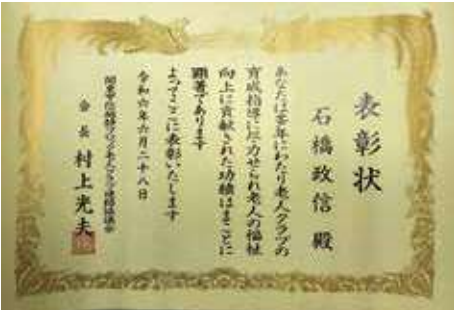 表彰状
石橋政信 殿
あなたは多年にわたり老人クラブの
育成指導に尽力せられ老人の福祉
向上に貢献された功績はまことに
顕著であります
よってここに表彰いたします
令和六年六月二十八日
会長 村上光夫